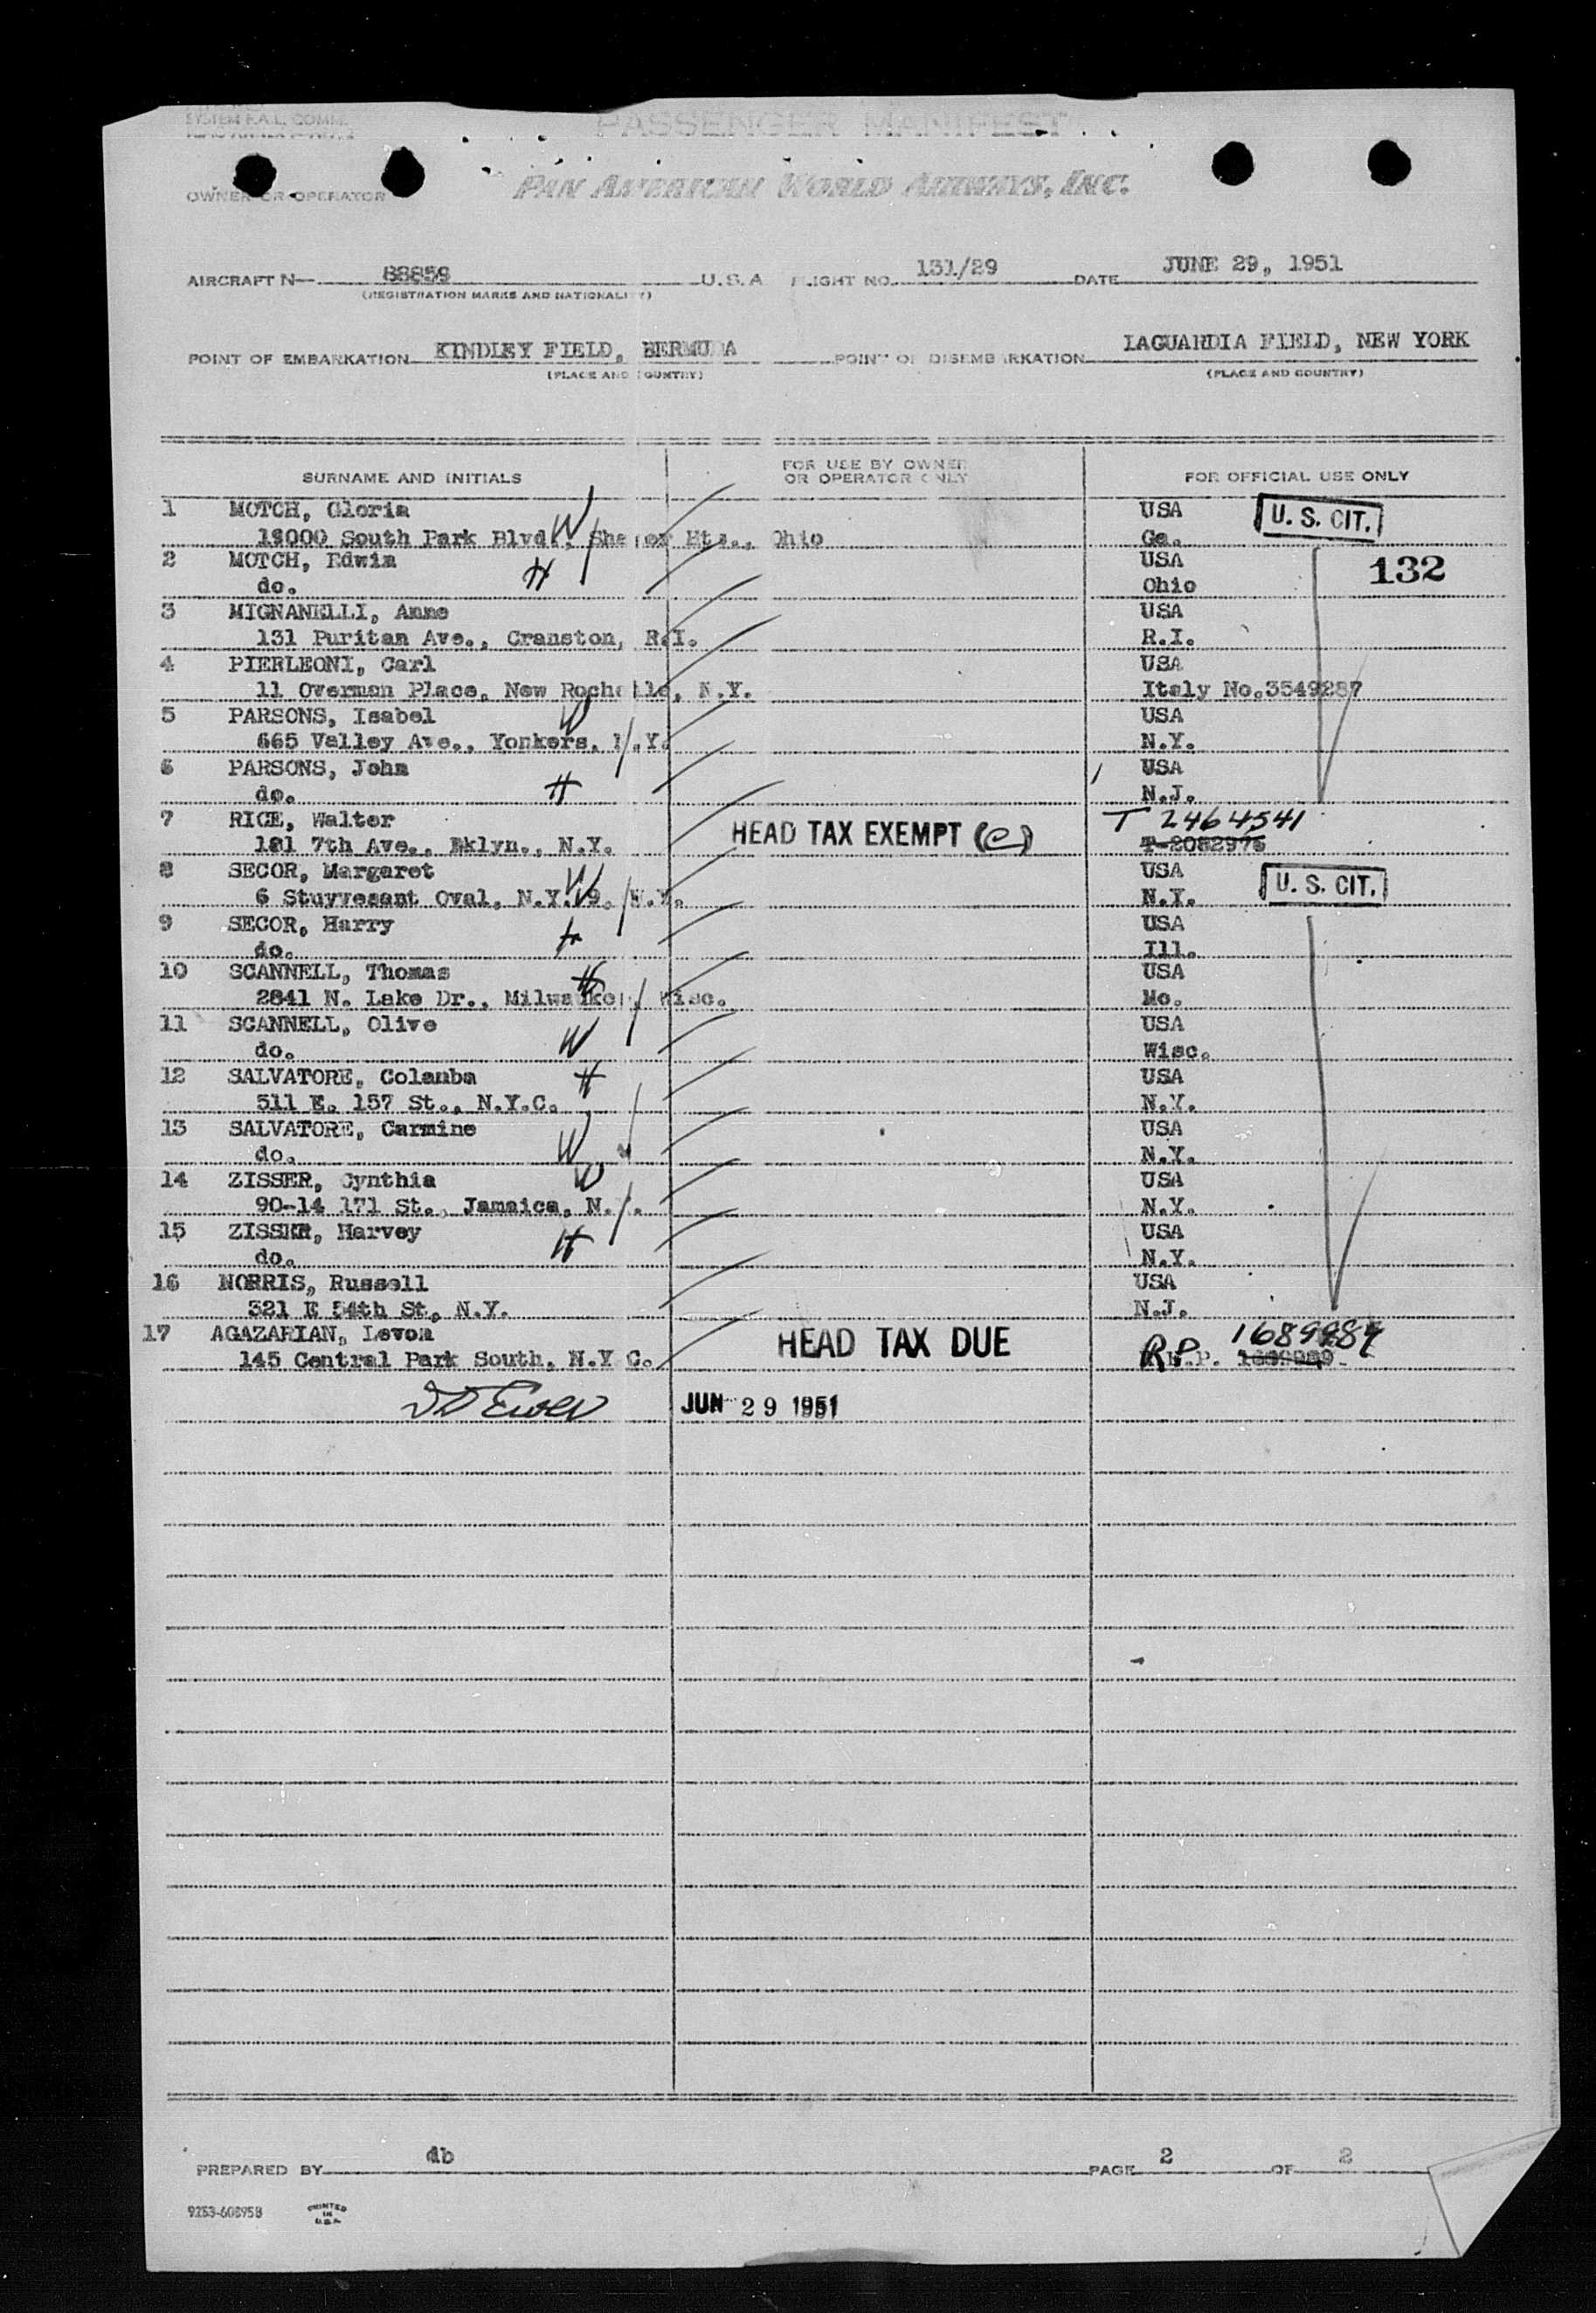 SYSTEM F.A.L. COMM.
PASSENGER MANIFEST
OWNER OR OPERATOR
PAN AMERICAN WORLD AIRWAYS, INC.
AIRCRAFT N— 88859 U.S.A FLIGHT NO. 131/29 DATE JUNE 29, 1951
(REGISTRATION MARKS AND NATIONALITY)
POINT OF EMBARKATION KINDLEY FIELD, BERMUDA POINT OF DISEMBARKATION LAGUARDIA FIELD, NEW YORK
(PLACE AND COUNTRY) (PLACE AND COUNTRY)
SURNAME AND INITIALS FOR USE BY OWNER OR OPERATOR ONLY FOR OFFICIAL USE ONLY
1 MOTCH, Gloria W USA U. S. CIT.
South Park Blvd., Shaker Hts., Ohio Ga.
2 MOTCH, Edwin H USA 132
do. Ohio
3 MIGNANELLI, Anne USA
131 Puritan Ave., Cranston, R.I. R.I.
4 PIERLEONI, Carl USA
11 Overman Place, New Rochelle, N.Y. Italy No.3549287
5 PARSONS, Isabel W USA
665 Valley Ave., Yonkers, N.Y. N.Y.
6 PARSONS, John H USA
do. N.J.
7 RICE, Walter HEAD TAX EXEMPT (e) T 2464541
181 7th Ave., Bklyn., N.Y. T-2082976
8 SECOR, Margaret W USA U. S. CIT.
6 Stuyvesant Oval, N.Y. 9, N.Y. N.Y.
9 SECOR, Harry H USA
do. Ill.
10 SCANNELL, Thomas H USA
2841 N. Lake Dr., Milwaukee, Wisc. Mo.
11 SCANNELL, Olive W USA
do. Wisc.
12 SALVATORE, Colamba H USA
511 E. 157 St., N.Y.C. N.Y.
13 SALVATORE, Carmine W USA
do. N.Y.
14 ZISSER, Cynthia W USA
90-14 171 St., Jamaica, N.Y. N.Y.
15 ZISSER, Harvey H USA
do. N.Y.
16 NORRIS, Russell USA
321 E 54th St, N.Y. N.J.
17 AGAZARIAN, Levon HEAD TAX DUE 1689989
145 Central Park South, N.Y.C. RP
JUN 29 1951
PREPARED BY db PAGE 2 OF 2
9253-608958 PRINTED IN U.S.A.